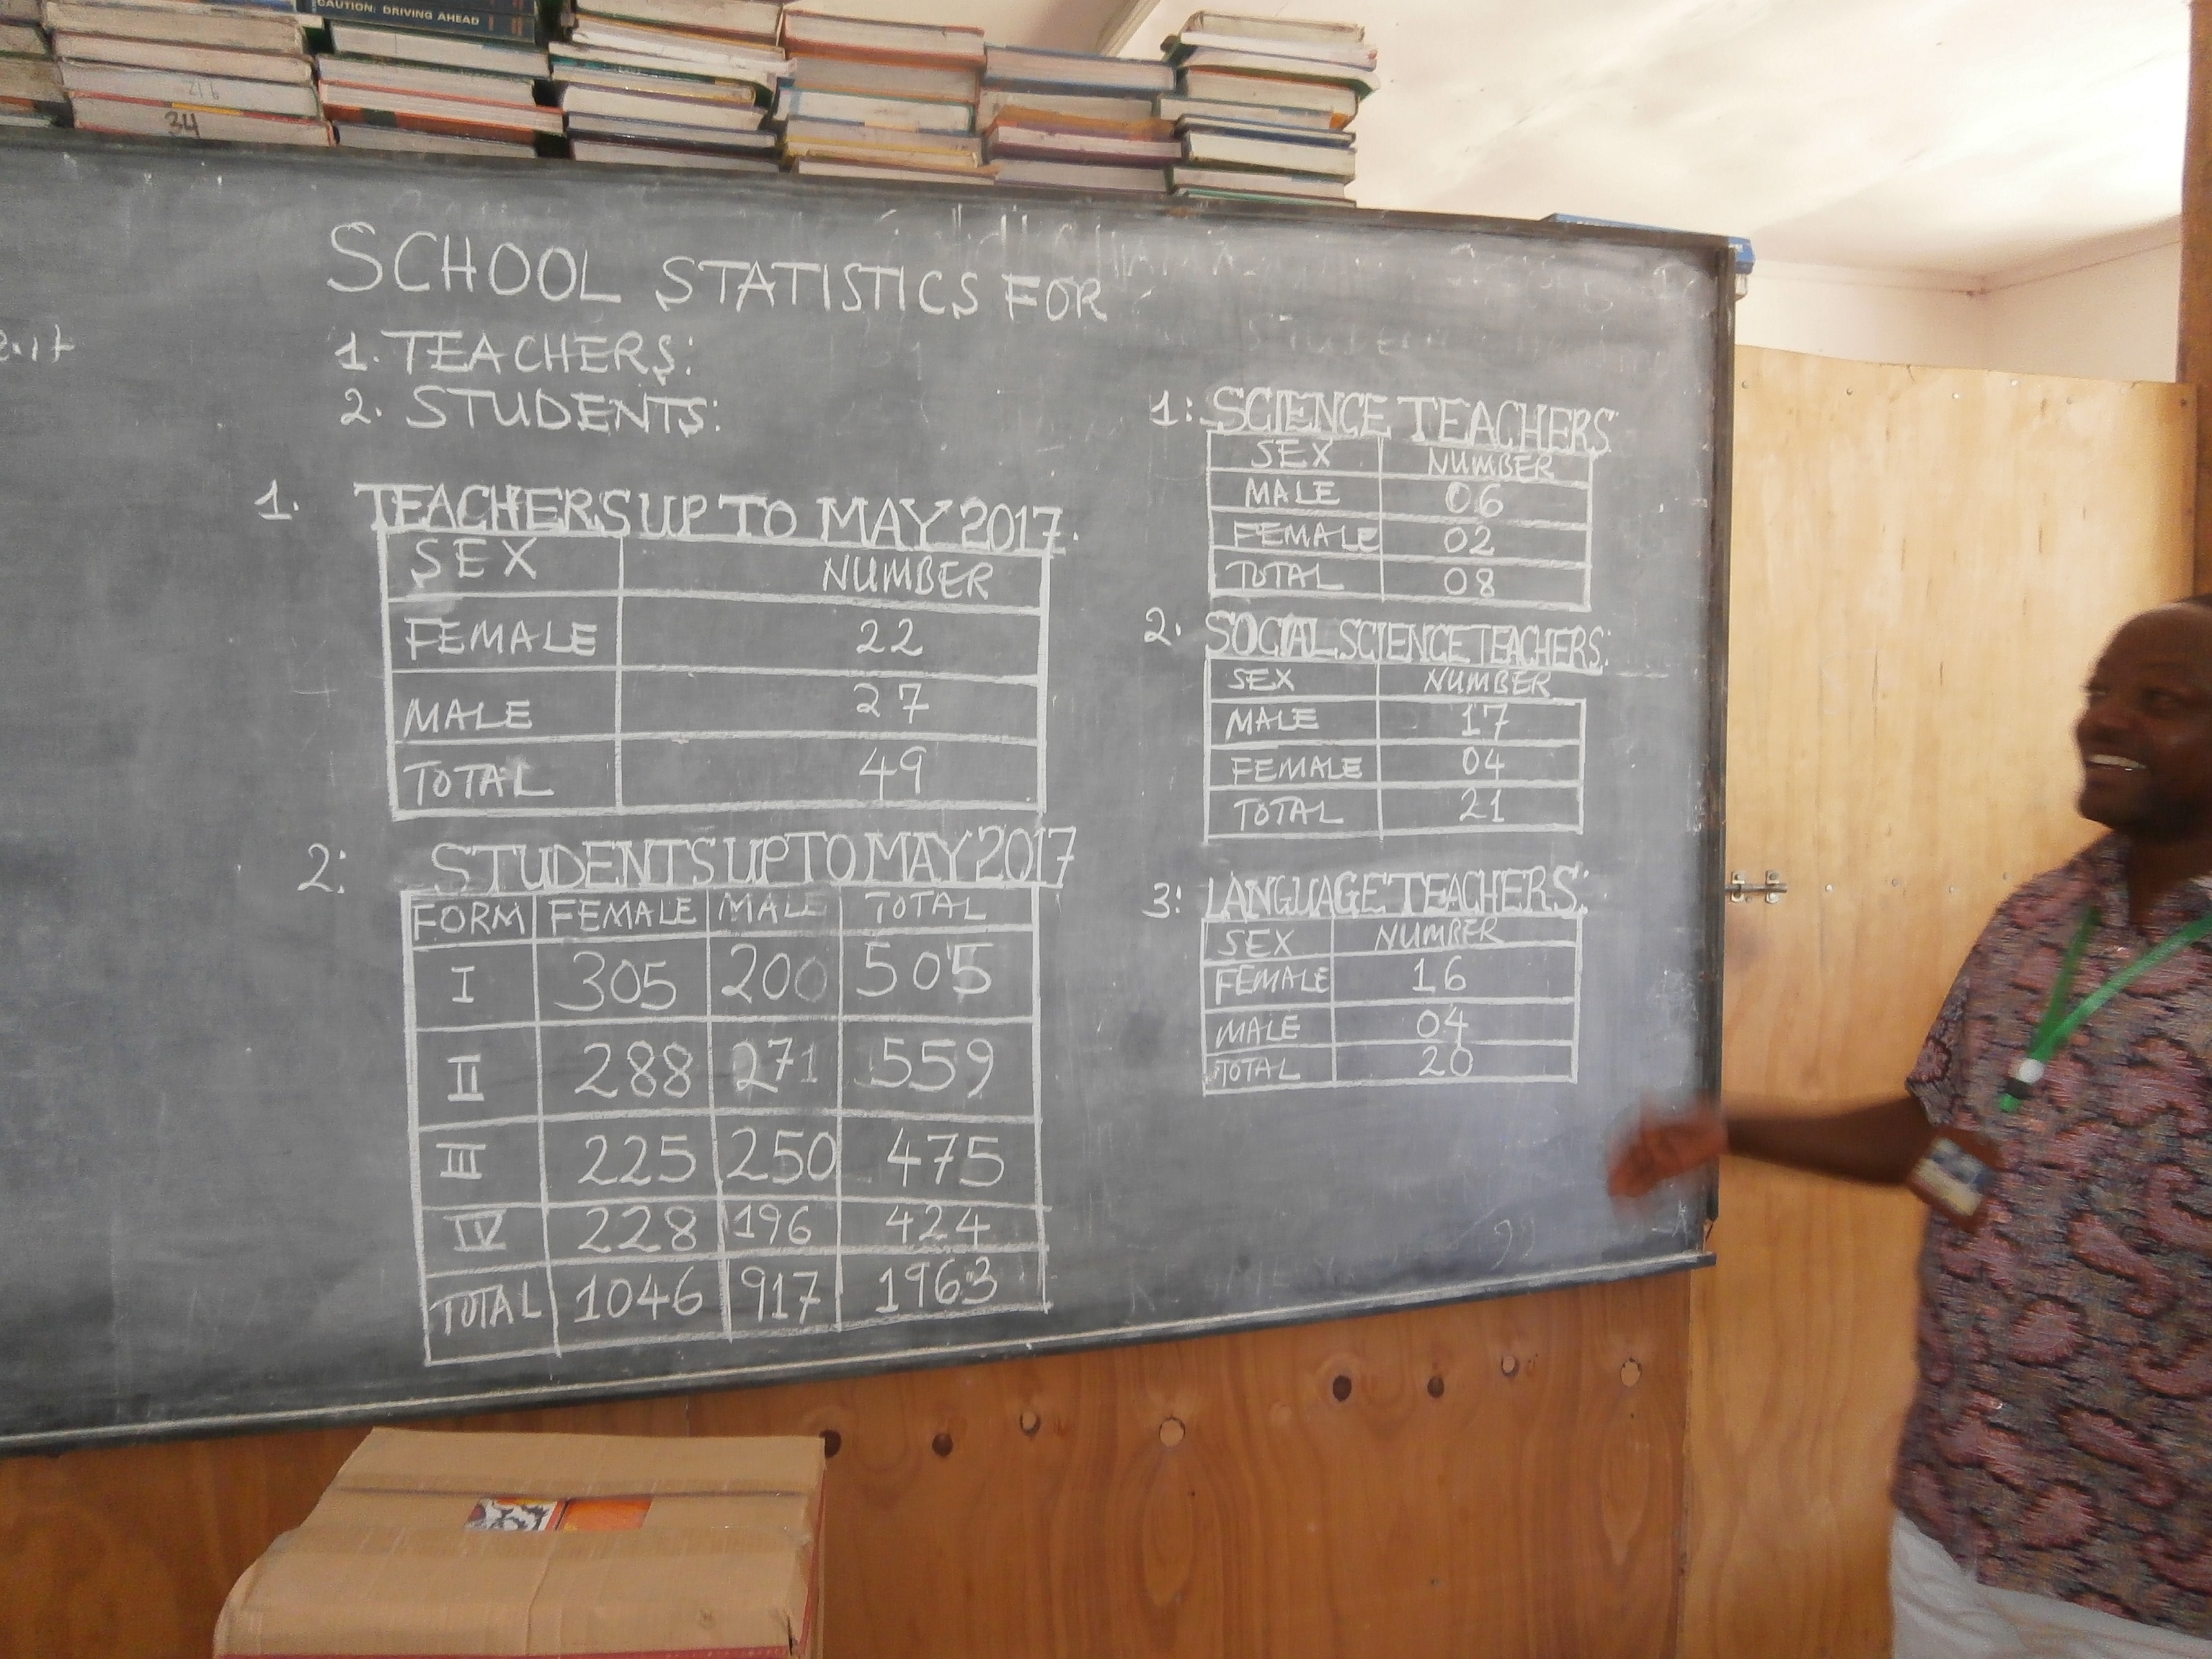 CAUTION: DRIVING AHEAD
34
SCHOOL STATISTICS FOR
1. TEACHERS:
2. STUDENTS:
1. TEACHERS UP TO MAY 2017.
SEX NUMBER
FEMALE 22
MALE 27
TOTAL 49
2: STUDENTS UP TO MAY 2017
FORM FEMALE MALE TOTAL
I 305 200 505
II 288 271 559
III 225 250 475
IV 228 196 424
TOTAL 1046 917 1963
1: SCIENCE TEACHERS
SEX NUMBER
MALE 06
FEMALE 02
TOTAL 08
2. SOCIAL SCIENCE TEACHERS:
SEX NUMBER
MALE 17
FEMALE 04
TOTAL 21
3: LANGUAGE TEACHERS:
SEX NUMBER
FEMALE 16
MALE 04
TOTAL 20